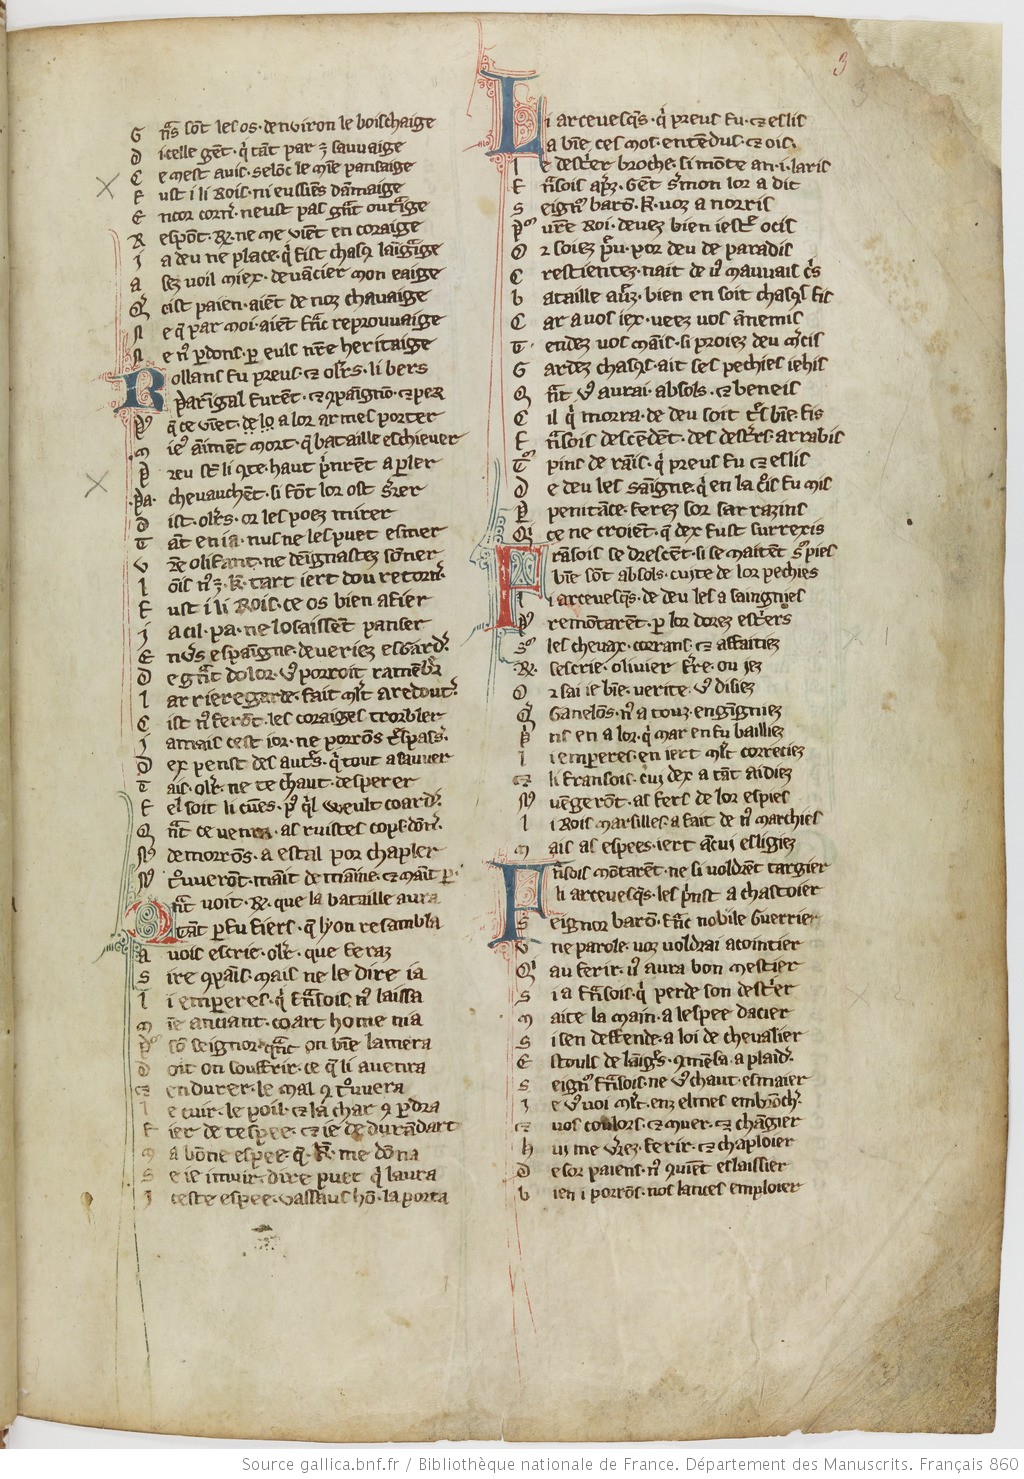 3
G ñs sōt les os · denviron le boischaige
D icelle gēt · q̇ tāt par ē sauvaige
C e mest avis · selōc le miē pansaige
F ust i li Rois · ni eussiēs dāmaige
E ncor corñ · neust pas gñt outige
R espōt · R̃ · ne me viēt en coraige
J a deu ne place · q̇ fist chascū laīgaige
A sez voil miex · devancier mon eaige
Q̄ cist paien · aiēt de noz chavaige
N e q̄ par moi · aiēt frāc reprouvaige
N e ñ pdons · p euls ñre heritaige
R ollans fu preus · ⁊ olīs · li bers
Parīgal furēt · ⁊ ꝯpaīgnō · ⁊ per
P⁹ q̄ ce viēt · de lo a lor armes porter
M ieꝰ aiment mort · q̄ bataille eschiever
P reu sōt li ꝯte · haut pīnrēt a pler
Pa · chevauchēt · si fōt lor ost srer
D ist · olīs · or les poez mirer
T āt en i a · nus ne les puet esmer
V r̄e olifant · ne deīgnastes sōner
l ōis ñ ē · K̄ · tart iert dou retorñ
F ust i li Rois · ce os bien afier
J a cil · pa · ne losaissēt panser
E nv̄s espaīgne · devriez esgard
D e gñt dolor · v⁹ porroit ramēbr
L arrieregarde · fait ml̄t a redout
C ist ñ ferōt · les coraiges trobler
J amais cest ior · ne porrōs tspasser
D ex penst des autr̄s · q̇ tout a sauver
T ais · olīr · ne te chaut · desperer
F el soit li cuēs · p⁹ q̇l vveult coard
Q̄ nt ce venra · as ruistes cops · dōn
N⁹ demorrōs · a estal por chapler
N⁹ tuverōt · maīt de maīne · ⁊ maīt p
Q nt voit · R̃ · que la bataille aura
Tāt par fu fiers · q̄ lyon resambla
A vois escrie · olīr · que feraz
S ire ꝯpaīs · mais ne le dire ia
L i emperes · q̇ frāsois · ñ laissa
M īe anciant · coart home nia
P⁹ sō seignor · q̄nc on biē lamera
D oit on souffrir · ce q̄ li avenra
⁊ endurer · le mal ꝯ tuvera
L e cuir · le poil · ⁊ la char ꝯ pdra
F ier de tespee · ⁊ ie de durandart
M a bōne espee · q̄ · K̄ · me dōna
S e ie imuir · dire puet q̇ laura
J ceste espee · vassaus hō · la porta
L i arcevesq̄s · q̇ preus fu · ⁊ eslis
a biē ces mos · entēdus · ⁊ ois
L e destrer broche · si monte an · i · laris
F rāsois apz · gēt srmon lor a dit
S eigñ barō · K̄ · voz a norris
P⁹ vr̄e Roi · devez bien iestr ocis
O r soiez pu · por deu de paradis
C restientez · nait de v⁹ mauvais cs
B ataille aurz · bien en soit chascūs fis
C ar a vos iex · veez vos ānemis
T endez vos māis · si proiez deu mcis
G ardez chascūs · ait ses pechies iehis
Q̄ nt v⁹ aurai · absols · ⁊ beneis
C il q̇ morra · de deu soit tos biē fis
F rāsois descēdēt · des destrs · arrabis
T⁹ pins de raīs · q̇ preus fu ⁊ eslis
D e deu les saigne · q̇ en la crois fu mis
P penitāce · ferez sor sarrazins
Q̇ ce ne croiēt · q̄ dex fust surrexis
F rāsois se drescēt · si se maitēt s⁹ pies
biē sōt absols · cuite de lor pechies
L i arcevesq̄s · de deu les a saingnies
P⁹ remōtarēt · p lor dorez estrs
S⁹ les chevax · corans · ⁊ affaitiez
R̃ · sescrie · olivier · frere · ou iez
O r sai ie biē · verite · v⁹ disiez
Q̄ Ganelōs · ñ a touz · engīgniez
P ris en a lor · q̇ mar en fu bailliez
L i emperes · en iert ml̄t correciez
⁊ li fransois · cui dex a tāt aidiez
N⁹ vēgerōt · as fers de lor espies
L i Rois marsilles · a fait de ñ marchies
M ais as espees · iert ācui esligiez
F rāsois mōtarēt · ne si voldrēt targier
li arcevesq̄s · les pnst a chastoier
S eignor barō · frāc nobile guerrier
V ne parole · voz voldrai acointier
Q̇ au ferir · v⁹ aura bon mestier
S i a frāsois · q̇ perde son destrer
M aite la main · a lespee dacier
S i sen deffende · a loi de chevalier
E stouls de laīgrs · ꝯmēsa · a plaid
S eigñ frāsois · ne v⁹ chaut · esmaier
J e v⁹ voi ml̄t · enz elmes embrōch
⁊ vos coulors · ⁊ muer · ⁊ chāngier
H ui me vrez · ferir · ⁊ chaploier
D esor paiens · ñ quiēt eslaissier
B ien i porrōs · nos lances emploier
Source gallica.bnf.fr / Bibliothèque nationale de France. Département des Manuscrits. Français 860